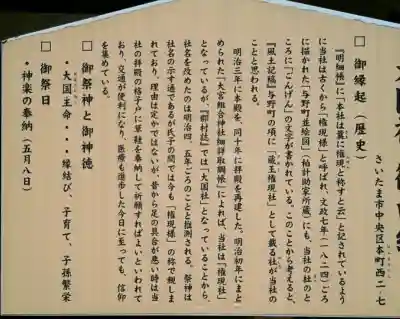 大国社 御由緒
さいたま市中央区本町西二-七
□ 御縁起（歴史）
『明細帳』に「本社は曩に権現と称すと云」と記されているよう
に当社は古くから「権現様」と呼ばれ、文政七年（一八二四）ごろ
に描かれた「与野町並絵図」（柚計助家所蔵）にも、当社の社のと
ころに「ごんげん」の文字が書かれている。このことから考えると、
『風土記稿』与野町の項に「蔵王権現社」として載る社が当社の
ことと思われる。
明治三年に本殿を、同十年に拝殿を再建した。明治初年にまと
められた「大宮組合神社細詳取調帳」によれば、当社は「権現社」
となっているが、『郡村誌』では「大国社」となっていることから、
社名を改めたのは明治四、五年ごろのことと推測される。祭神は
社名の示す通りであるが氏子の間では今も「権現様」の称で親しま
れており、理由は定かではないが、昔から足の具合が悪い時は当
社の拝殿の格子戸に草鞋を奉納して祈願すればよいといわれて
おり、交通が便利になり、医療も進歩した今日に至っても、信仰
を集めている。
□ 御祭神と御神徳
・大国主命・・・縁結び、子育て、子孫繁栄
□ 御祭日
・神楽の奉納（五月八日）